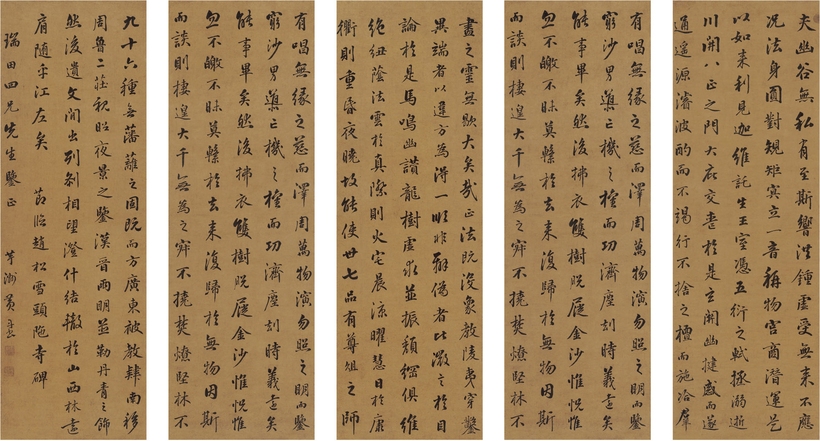 夫幽谷無私有至斯響洪鍾虛受無來不應
况法身圓對規矩冥立一音稱物宮商潛運是
以如來利見迦維託生王室憑五衍之軾拯溺逝
川開八正之門大庇交喪於是玄關幽揵感而遂
通遙源濬波酌而不竭行不捨之檀而施洽羣
有唱無緣之慈而澤周萬物演勿照之明而鑒
窮沙界導亡機之權而功濟塵劫時義遠矣
能事畢矣然後拂衣雙樹脫屣金沙惟怳惟
忽不皦不昧莫繫於去來復歸於無物因斯
而談則棲遑大千無為之寂不撓焚燎堅林不
盡之靈無歇大矣哉正法既沒象教陵夷穿鑿
異端者以違方為得一順非辯偽者比微言於目
論於是馬鳴幽讚龍樹虛求並振頹綱俱維
絕紐蔭法雲於真際則火宅晨涼曜慧日於康
衢則重昏夜曉故能使丗七品有尊俎之師
有唱無緣之慈而澤周萬物演勿照之明而鑒
窮沙界導亡機之權而功濟塵劫時義遠矣
能事畢矣然後拂衣雙樹脫屣金沙惟怳惟
忽不皦不昧莫繫於去來復歸於無物因斯
而談則棲遑大千無為之寂不撓焚燎堅林不
九十六種無藩籬之固既而方廣東被教肄南移
周魯二莊親昭夜景之鑒漢晉兩明並勒丹青之飾
然後遺文間出列剎相望澄什結轍於山西林遠
肩隨乎江左矣 節臨趙松雪頭陁寺碑
瑞田四兄先生鑒正 洲黃